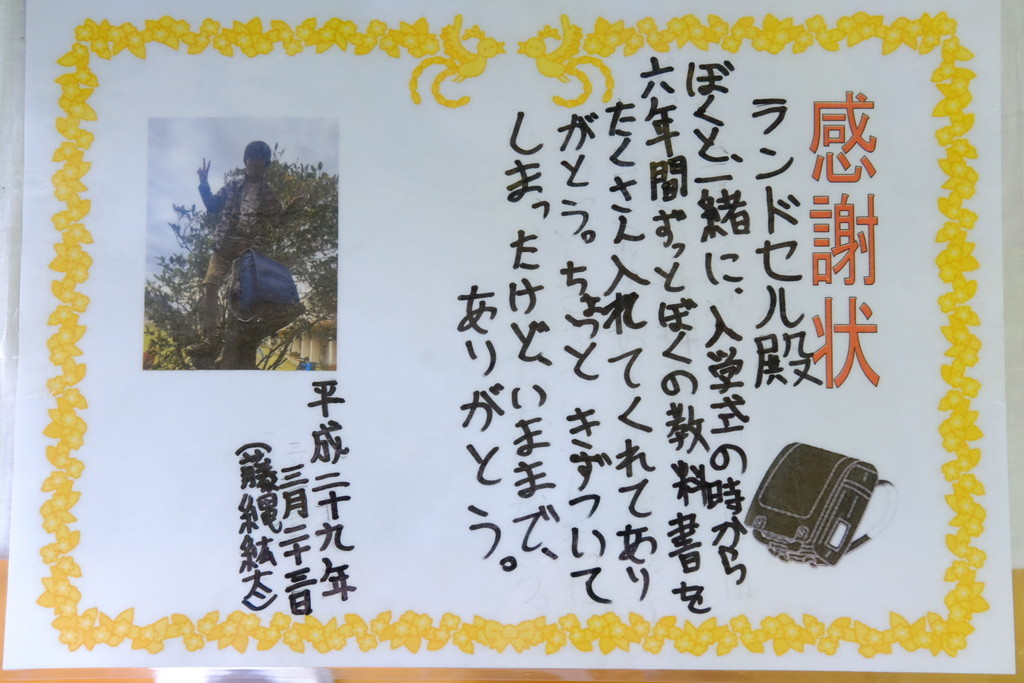 感謝状
ランドセル殿
ぼくと、一緒に、入学式の時から
六年間ずっとぼくの教料書を
たくさん入れてくれてあり
がとう。ちょっときずついて
しまったけど、いままで、
ありがとう。
平成二十九年
三月二十三日
(藤縄紘太)